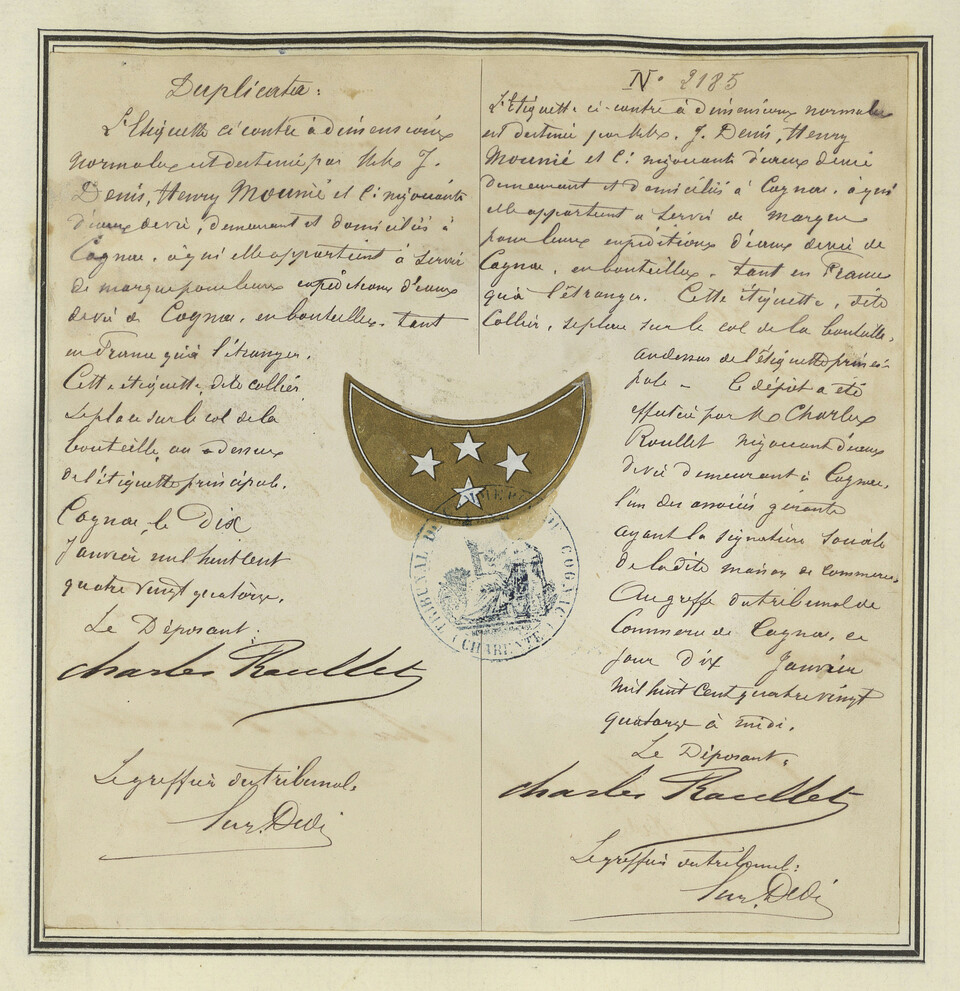 Duplicata :
L'Etiquette ci contre à dimensions
normales est destinée par MMrs J.
Denis, Henry Mounié et Cie négociants
d'eaux de vie, demeurant et domiciliés à
Cognac, à qui elle appartient à servir
de marque pour leurs expéditions d'eaux
de vie de Cognac, en bouteilles, tant
en France qu'à l'étranger.
Cette étiquette, dite collier,
se place sur le col de la
bouteille, au dessus
de l'étiquette principale.
Cognac, le Dix
Janvier mil huit cent
quatre vingt quatorze.
Le Déposant,
Charles Roullet
Le greffier du tribunal.
N° 2185
L'Etiquette ci-contre à dimensions normales
est destinée par MMrs. J. Denis, Henry
Mounié et Cie négociants d'eaux de vie
demeurant et domiciliés à Cognac, à qui
elle appartient à servir de marque
pour leurs expéditions d'eaux de vie de
Cognac, en bouteilles, tant en France
qu'à l'étranger. Cette étiquette, dite
Collier, se place sur le col de la bouteille,
au dessus de l'étiquette princi-
pale _ Le dépôt a été
effectué par Mr Charles
Roullet négociant d'eaux
de vie demeurant à Cognac,
l'un des associés gérants
ayant la signature sociale
de la dite maison de commerce.
Au greffe du tribunal de
Commerce de Cognac, ce
jour dix Janvier
mil huit cent quatre vingt
quatorze à midi.
Le Déposant,
Charles Roullet
Le greffier du tribunal :
TRIBUNAL DE COMMERCE DE COGNAC
(CHARENTE)